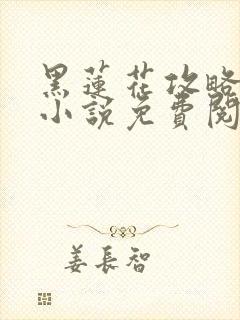 黑蓮花攻略
小說免費閱
姜長智